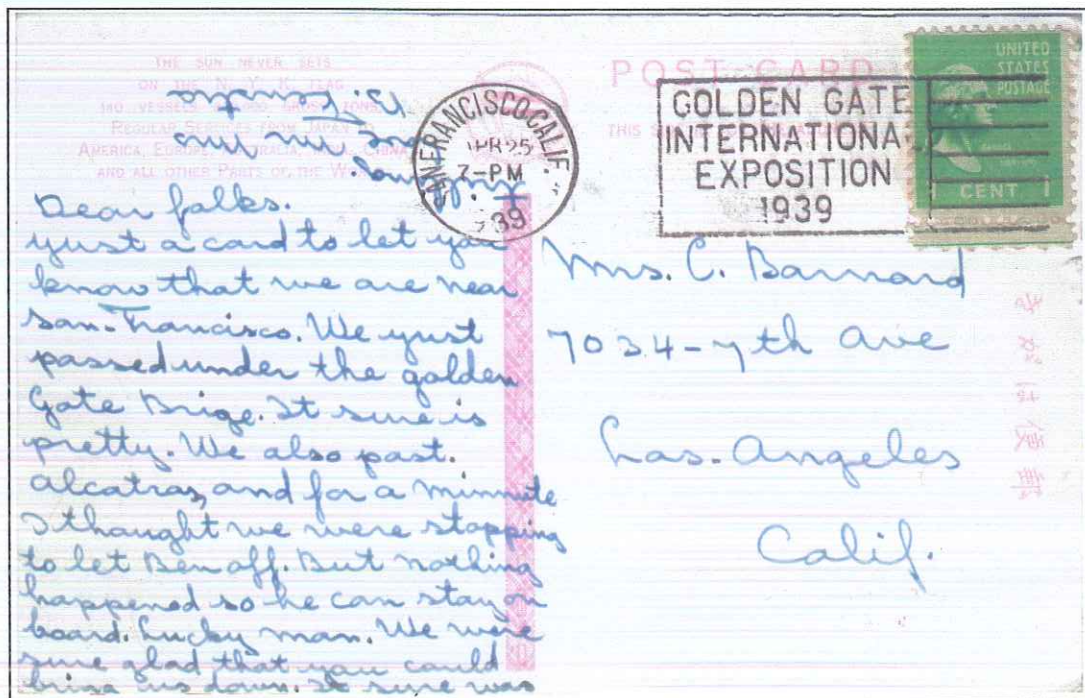 THE SUN NEVER SETS
ON THE N. Y. K. FLAG
140 VESSELS GROSS TONS
REGULAR SERVICES FROM JAPAN TO
AMERICA, EUROPE, AUSTRALIA, CHINA
AND ALL OTHER PARTS OF THE
POST CARD
THIS
SAN FRANCISCO, CALIF.
APR 25
7-PM
1939
GOLDEN GATE
INTERNATIONAL
EXPOSITION
1939
UNITED
STATES
POSTAGE
1 CENT 1
Dear folks.
yust a card to let you
know that we are near
San-Francisco. We yust
passed under the golden
Gate Brige. It sure is
pretty. We also past.
alcatras, and for a minnute
I thought we were stopping
to let Ben off. But nothing
happened so he can stay on
board. Lucky man. We were
sure glad that you could
bring us down. It sure was
Mrs. C. Barnard
7034-7th ave
Los-Angeles
Calif.